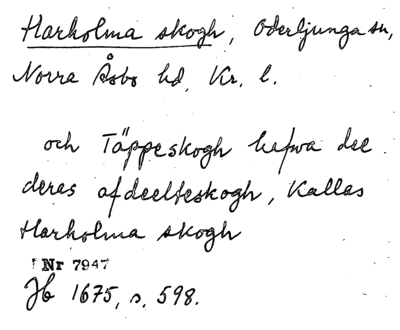 Harholma skogh, Oderljunga sn,
Norra Åsbo hd, Kr. l.
och Täppeskogh hafwa dee
deras afdeelteskogh, Kallas
Harholma skogh
Nr 7947
Jb 1675, s. 598.